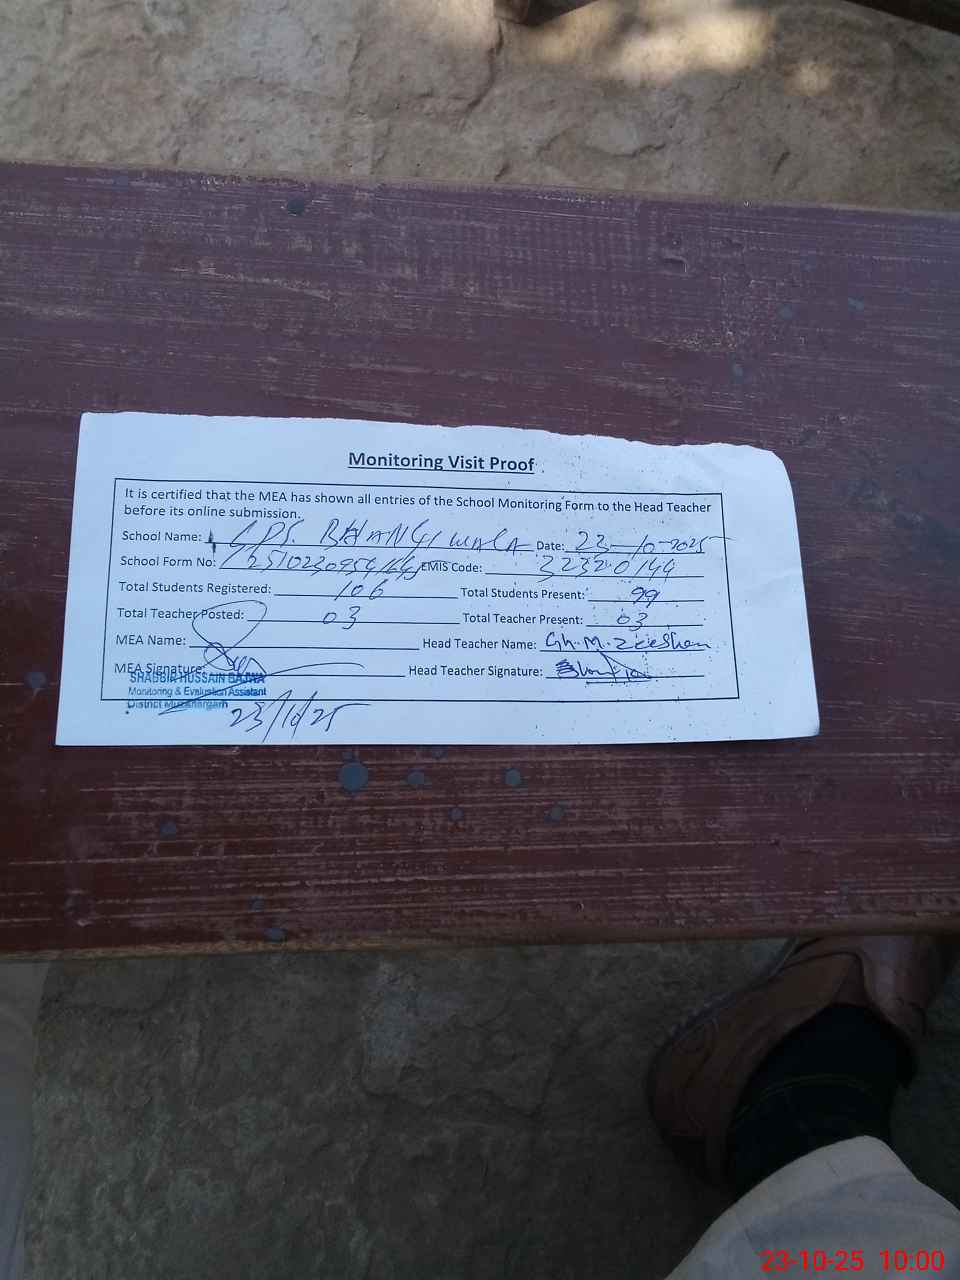 Monitoring Visit Proof
It is certified that the MEA has shown all entries of the School Monitoring Form to the Head Teacher
before its online submission.
School Name: BHANGI WALA Date: 23-10-2025
School Form No: EMIS Code: 32320144
Total Students Registered: 106 Total Students Present: 99
Total Teacher Posted: 03 Total Teacher Present: 03
MEA Name: Head Teacher Name: Gh.M.Zeeshan
MEA Signature: Head Teacher Signature:
SHABBIR HUSSAIN BAJWA
Monitoring & Evaluation Assistant
District Muzaffargarh
23/10/25
23-10-25 10:00